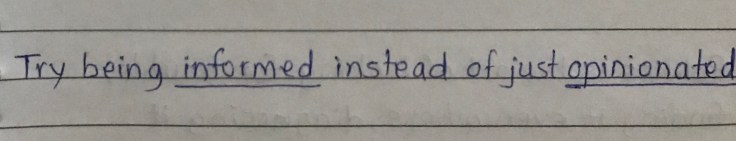 Try being informed instead of just opinionated